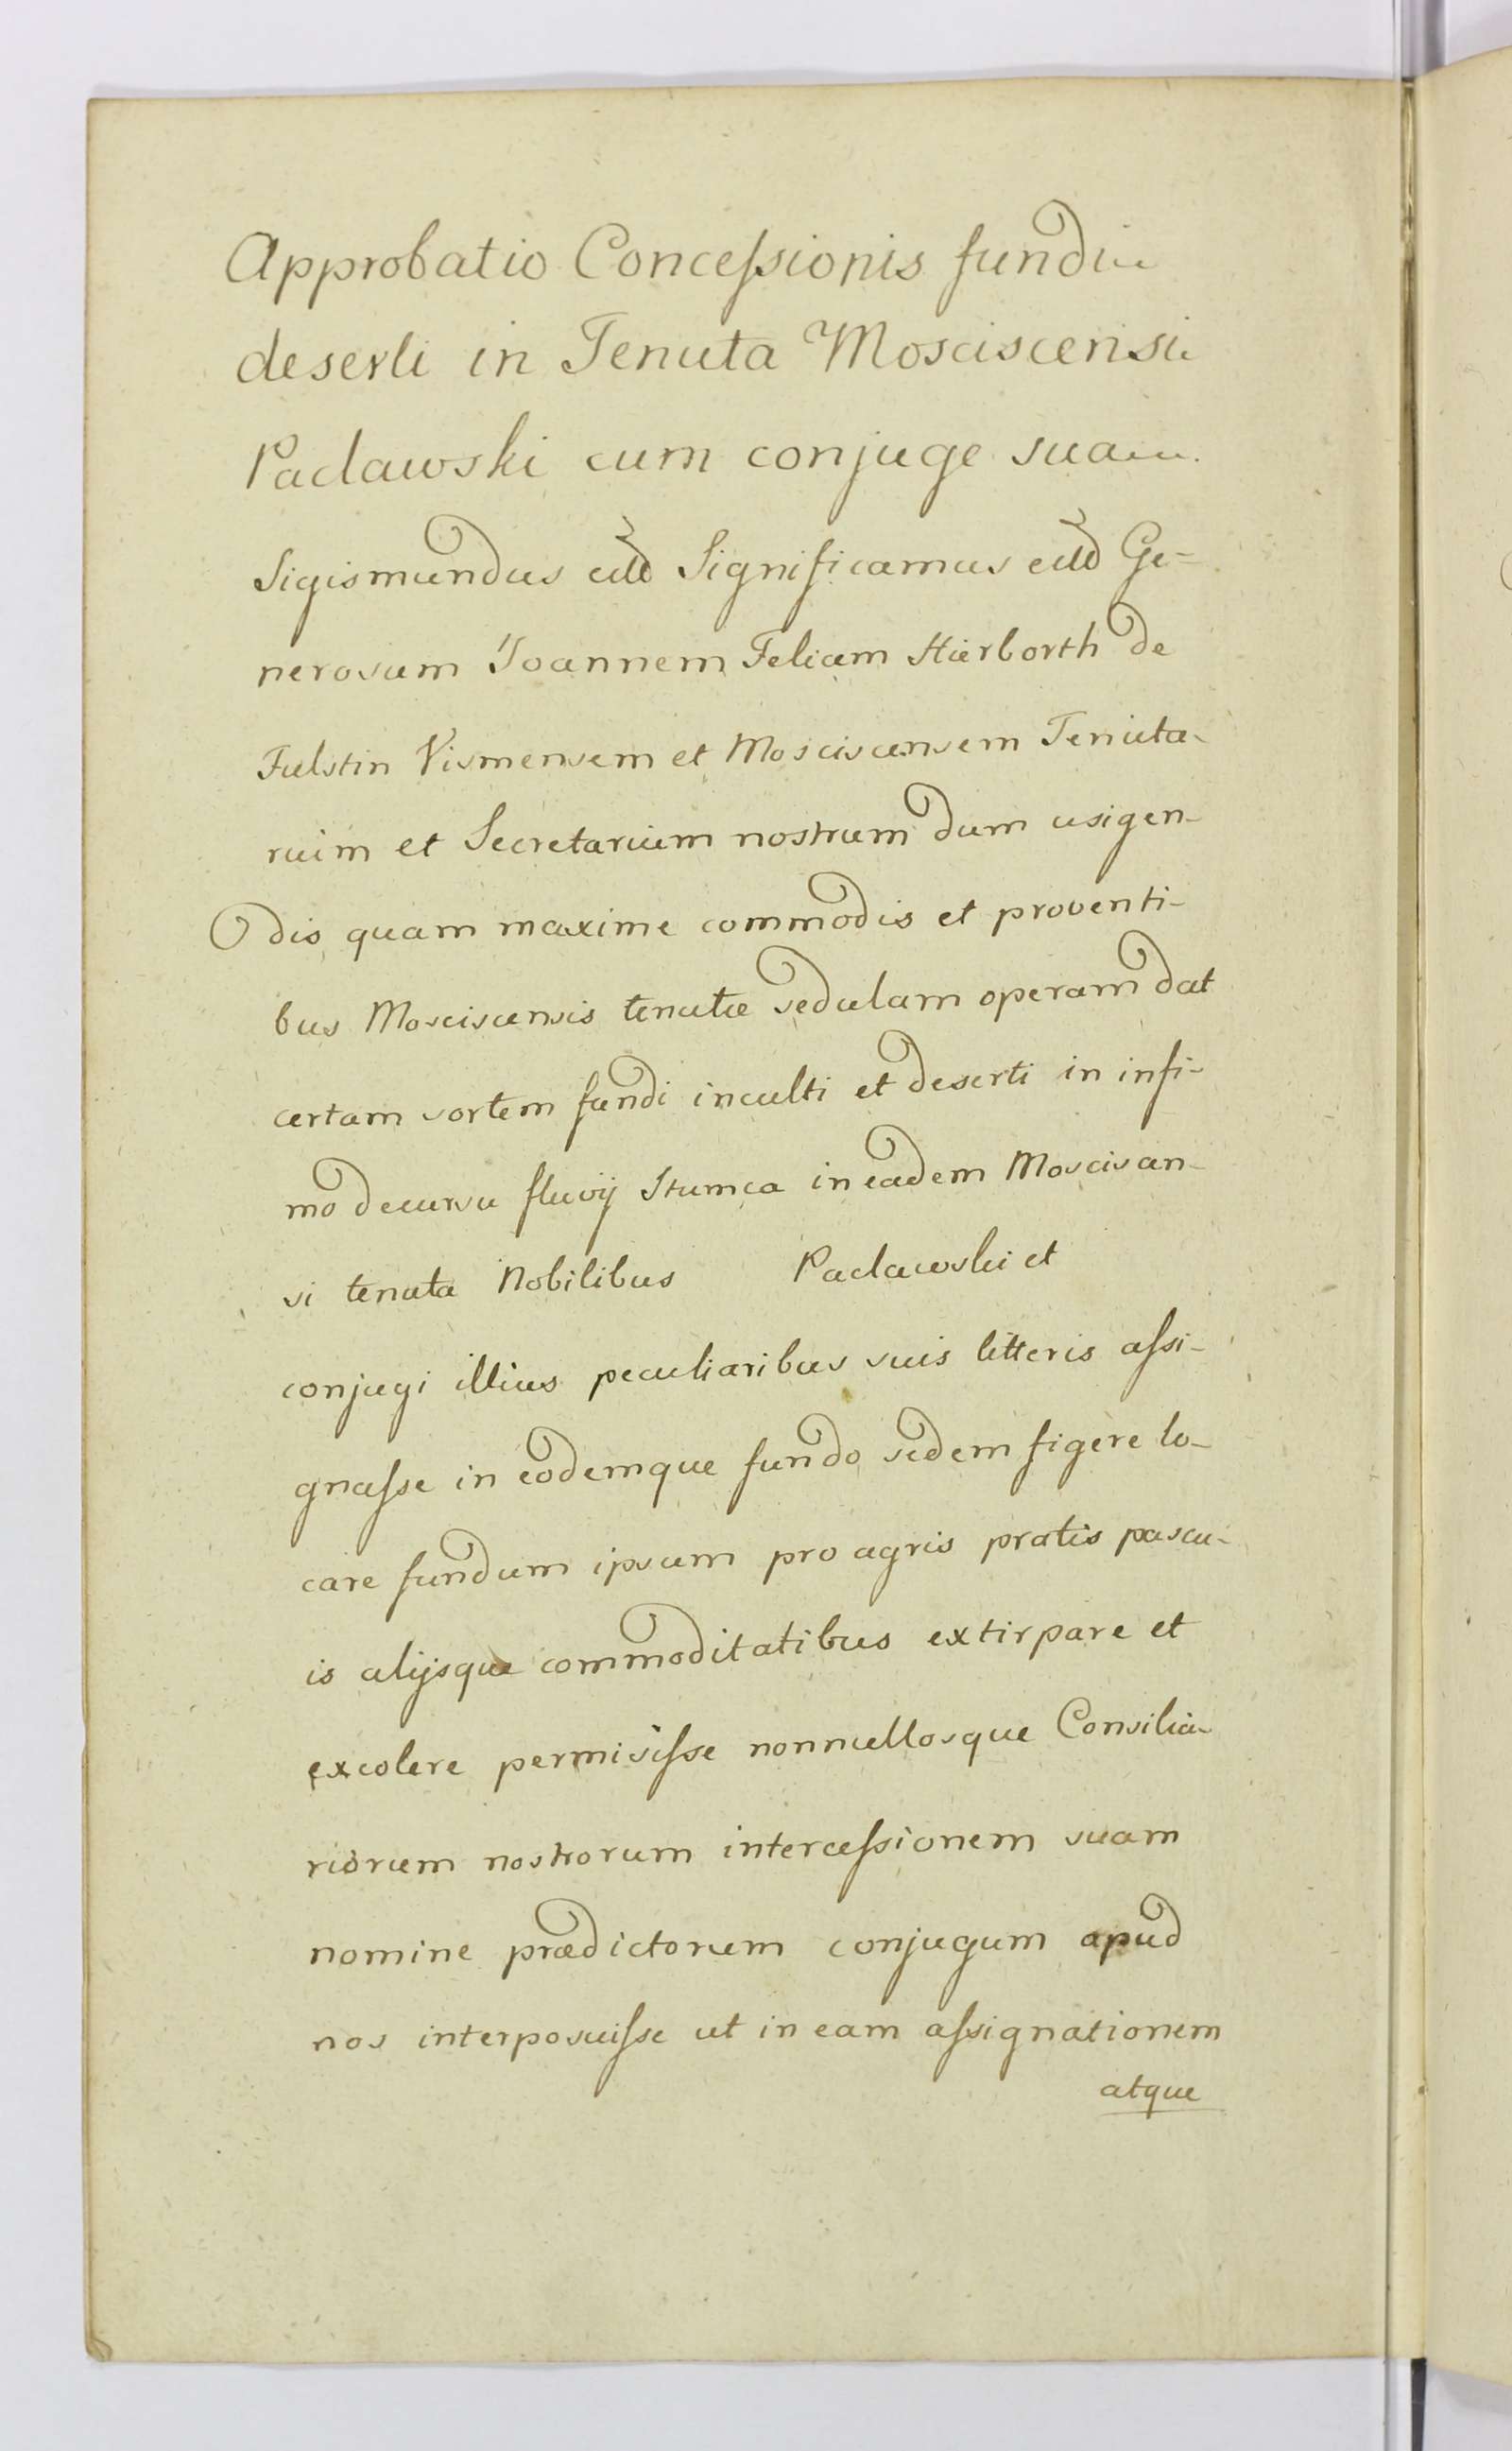 Approbatio Concessionis fundi
deserti in Tenuta Mosciscensi
Paclawski cum conjuge sua.
Sigismundus Significamus Ge-
nerosum Joannem Felicem Hierborth de
Fulstin Vismensem et Mosciscensem Tenuta-
rium et Secretarium nostrum dum usigen-
dis quam maxime commodis et proventi-
bus Mosciscensis tenutæ sedulam operam dat
certam sortem fundi inculti et deserti in infi-
mo decursu fluvij in eadem Mosciscen-
si tenuta Nobilibus Paclawski et
conjugi illius peculiaribus suis litteris assi-
gnasse in eodemque fundo sedem figere lo-
care fundum ipsum pro agris pratis pascu-
is alijsque commoditatibus extirpare et
excolere permisisse nonnullosque Consilia-
riorum nostrorum intercessionem suam
nomine prædictorum conjugum apud
nos interposuisse ut in eam assignationem
atque